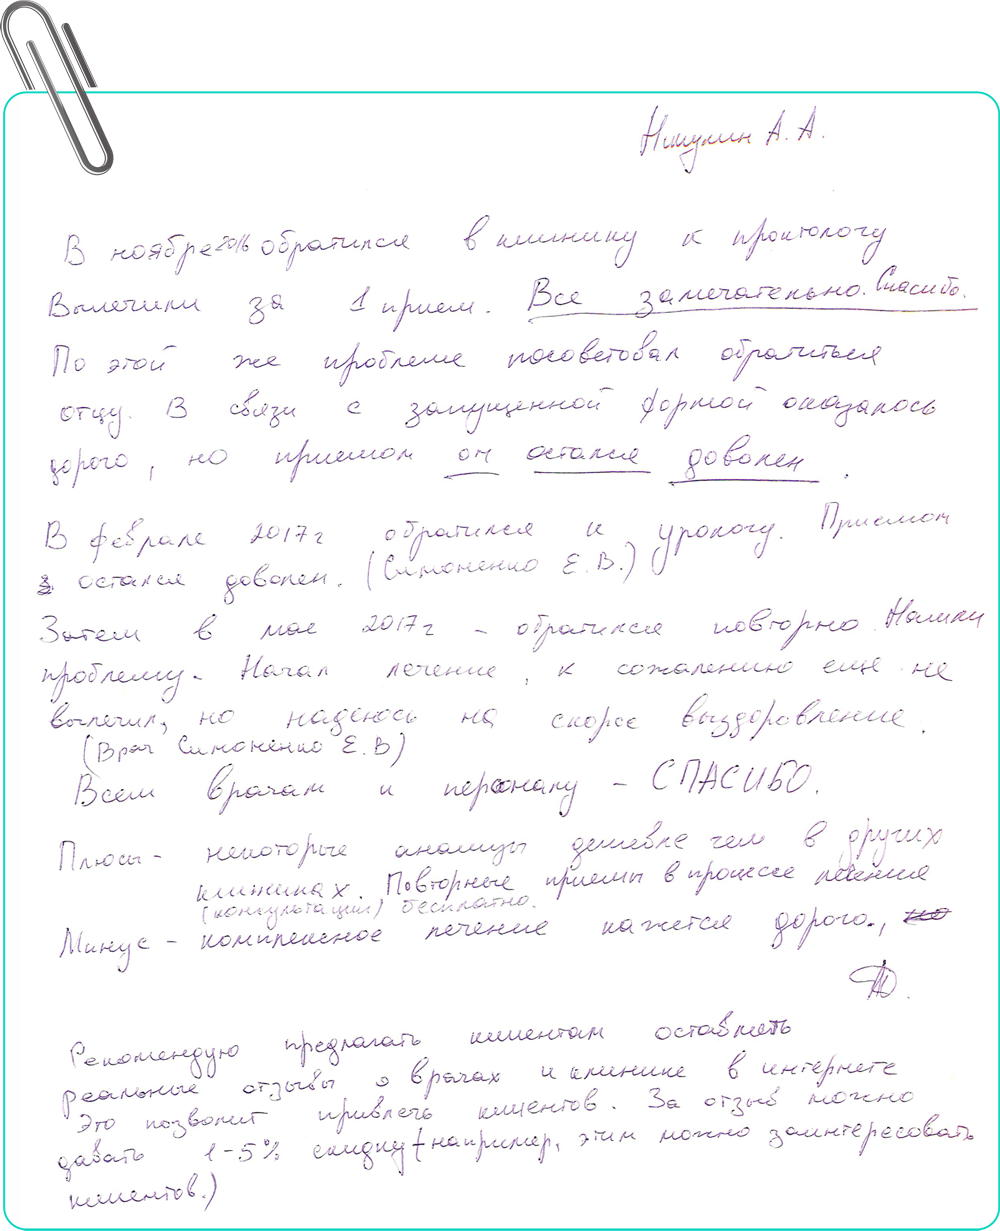 Никулин А. А.
В ноябре 2016 обратился в клинику к проктологу
Вылечили за 1 прием. Все замечательно. Спасибо.
По этой же проблеме посоветовал обратиться
отцу. В связи с запущенной формой оказалось
дорого, но приемом он остался доволен.
В феврале 2017 г обратился к урологу. Приемом
остался доволен. (Симоненко Е. В.)
Затем в мае 2017 г - обратился повторно. Нашли
проблему. Начал лечение, к сожалению еще не
вылечил, но надеюсь на скорое выздоровление.
(Врач Симоненко Е. В)
Всем врачам и персоналу - СПАСИБО.
Плюсы - некоторые анализы дешевле чем в других
клиниках. Повторные приемы в процессе лечения
(консультации) бесплатно.
Минус - комплексное лечение кажется дорого.,
Рекомендую предлагать клиентам оставлять
реальные отзывы о врачах и клинике в интернете
Это позволит привлечь клиентов. За отзыв можно
давать 1-5% скидку (например, этим можно заинтересовать
клиентов.)